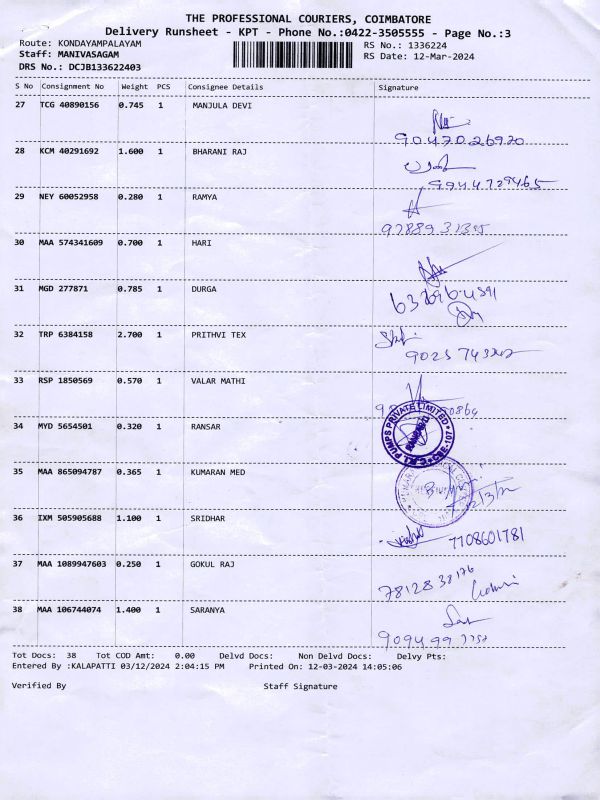 THE PROFESSIONAL COURIERS, COIMBATORE
Delivery Runsheet - KPT - Phone No.:0422-3505555 - Page No.:3
Route: KONDAYAMPALAYAM RS No.: 1336224
Staff: MANIVASAGAM RS Date: 12-Mar-2024
DRS No.: DCJB133622403
S No Consignment No Weight PCS Consignee Details Signature
27 TCG 40890156 0.745 1 MANJULA DEVI
9047026920
28 KCM 40291692 1.600 1 BHARANI RAJ
9944729465
29 NEY 60052958 0.280 1 RAMYA
30 MAA 574341609 0.700 1 HARI
31 MGD 277871 0.785 1 DURGA
32 TRP 6384158 2.700 1 PRITHVI TEX
33 RSP 1850569 0.570 1 VALAR MATHI
34 MYD 5654501 0.320 1 RANSAR
PUMPS PRIVATE LIMITED
35 MAA 865094787 0.365 1 KUMARAN MED
36 IXM 505905688 1.100 1 SRIDHAR
7108601781
37 MAA 1089947603 0.250 1 GOKUL RAJ
7812838176
38 MAA 106744074 1.400 1 SARANYA
Tot Docs: 38 Tot COD Amt: 0.00 Delvd Docs: Non Delvd Docs: Delvy Pts:
Entered By :KALAPATTI 03/12/2024 2:04:15 PM Printed On: 12-03-2024 14:05:06
Verified By Staff Signature